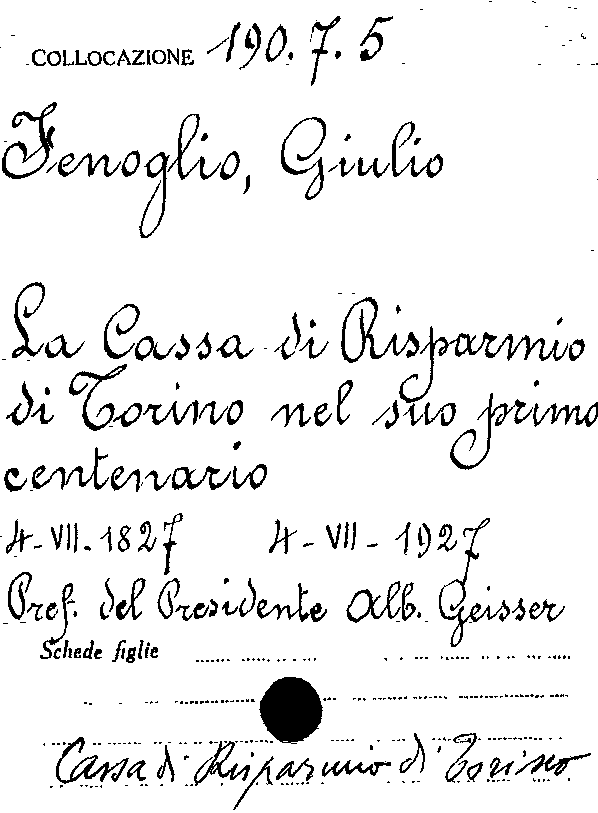 COLLOCAZIONE 190.7.5
Fenoglio, Giulio
La Cassa di Risparmio
di Torino nel suo primo
centenario
4-VII.1827 4-VII-1927
Pref. del Presidente Alb. Geisser
Schede figlie
Cassa di Risparmio di Torino